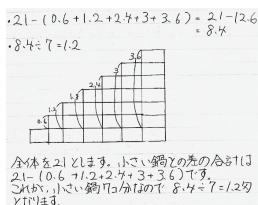 ・21-(0.6+1.2+2.4+3+3.6)=21-12.6
=8.4
・8.4÷7=1.2
3.6
3
2.4
0.6
全体を21とします。小さい鍋との差の合計は
21-(0.6+1.2+2.4+3+3.6)です。
これが、小さい鍋7コ分なので 8.4÷7=1.2匁
となります。